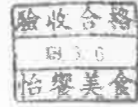 驗收合格
怡饗美食